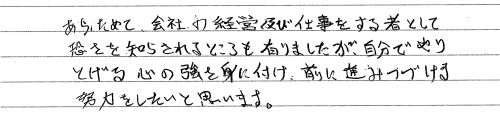 あらためて、会社の経営及び仕事をする者として
恐さを知らされるところも有りましたが、自分でやり
とげる心の強を身に付け、前に進みつづける
努力をしたいと思います。